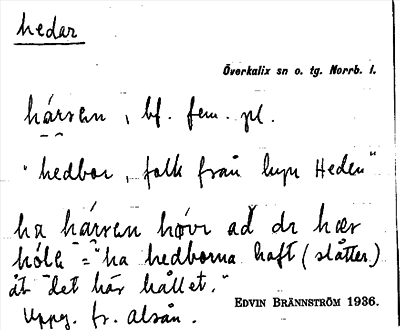 hedar
Överkalix sn o. tg. Norrb. l.
hárran, bf. fem. pl.
"hedbor, folk från byn Heden"
ha hárran hövi að dr hær
hóla = "ha hedborna haft (slåtter)
åt det här hållet."
Uppg. fr. Alsån.
EDVIN BRÄNNSTRÖM 1936.